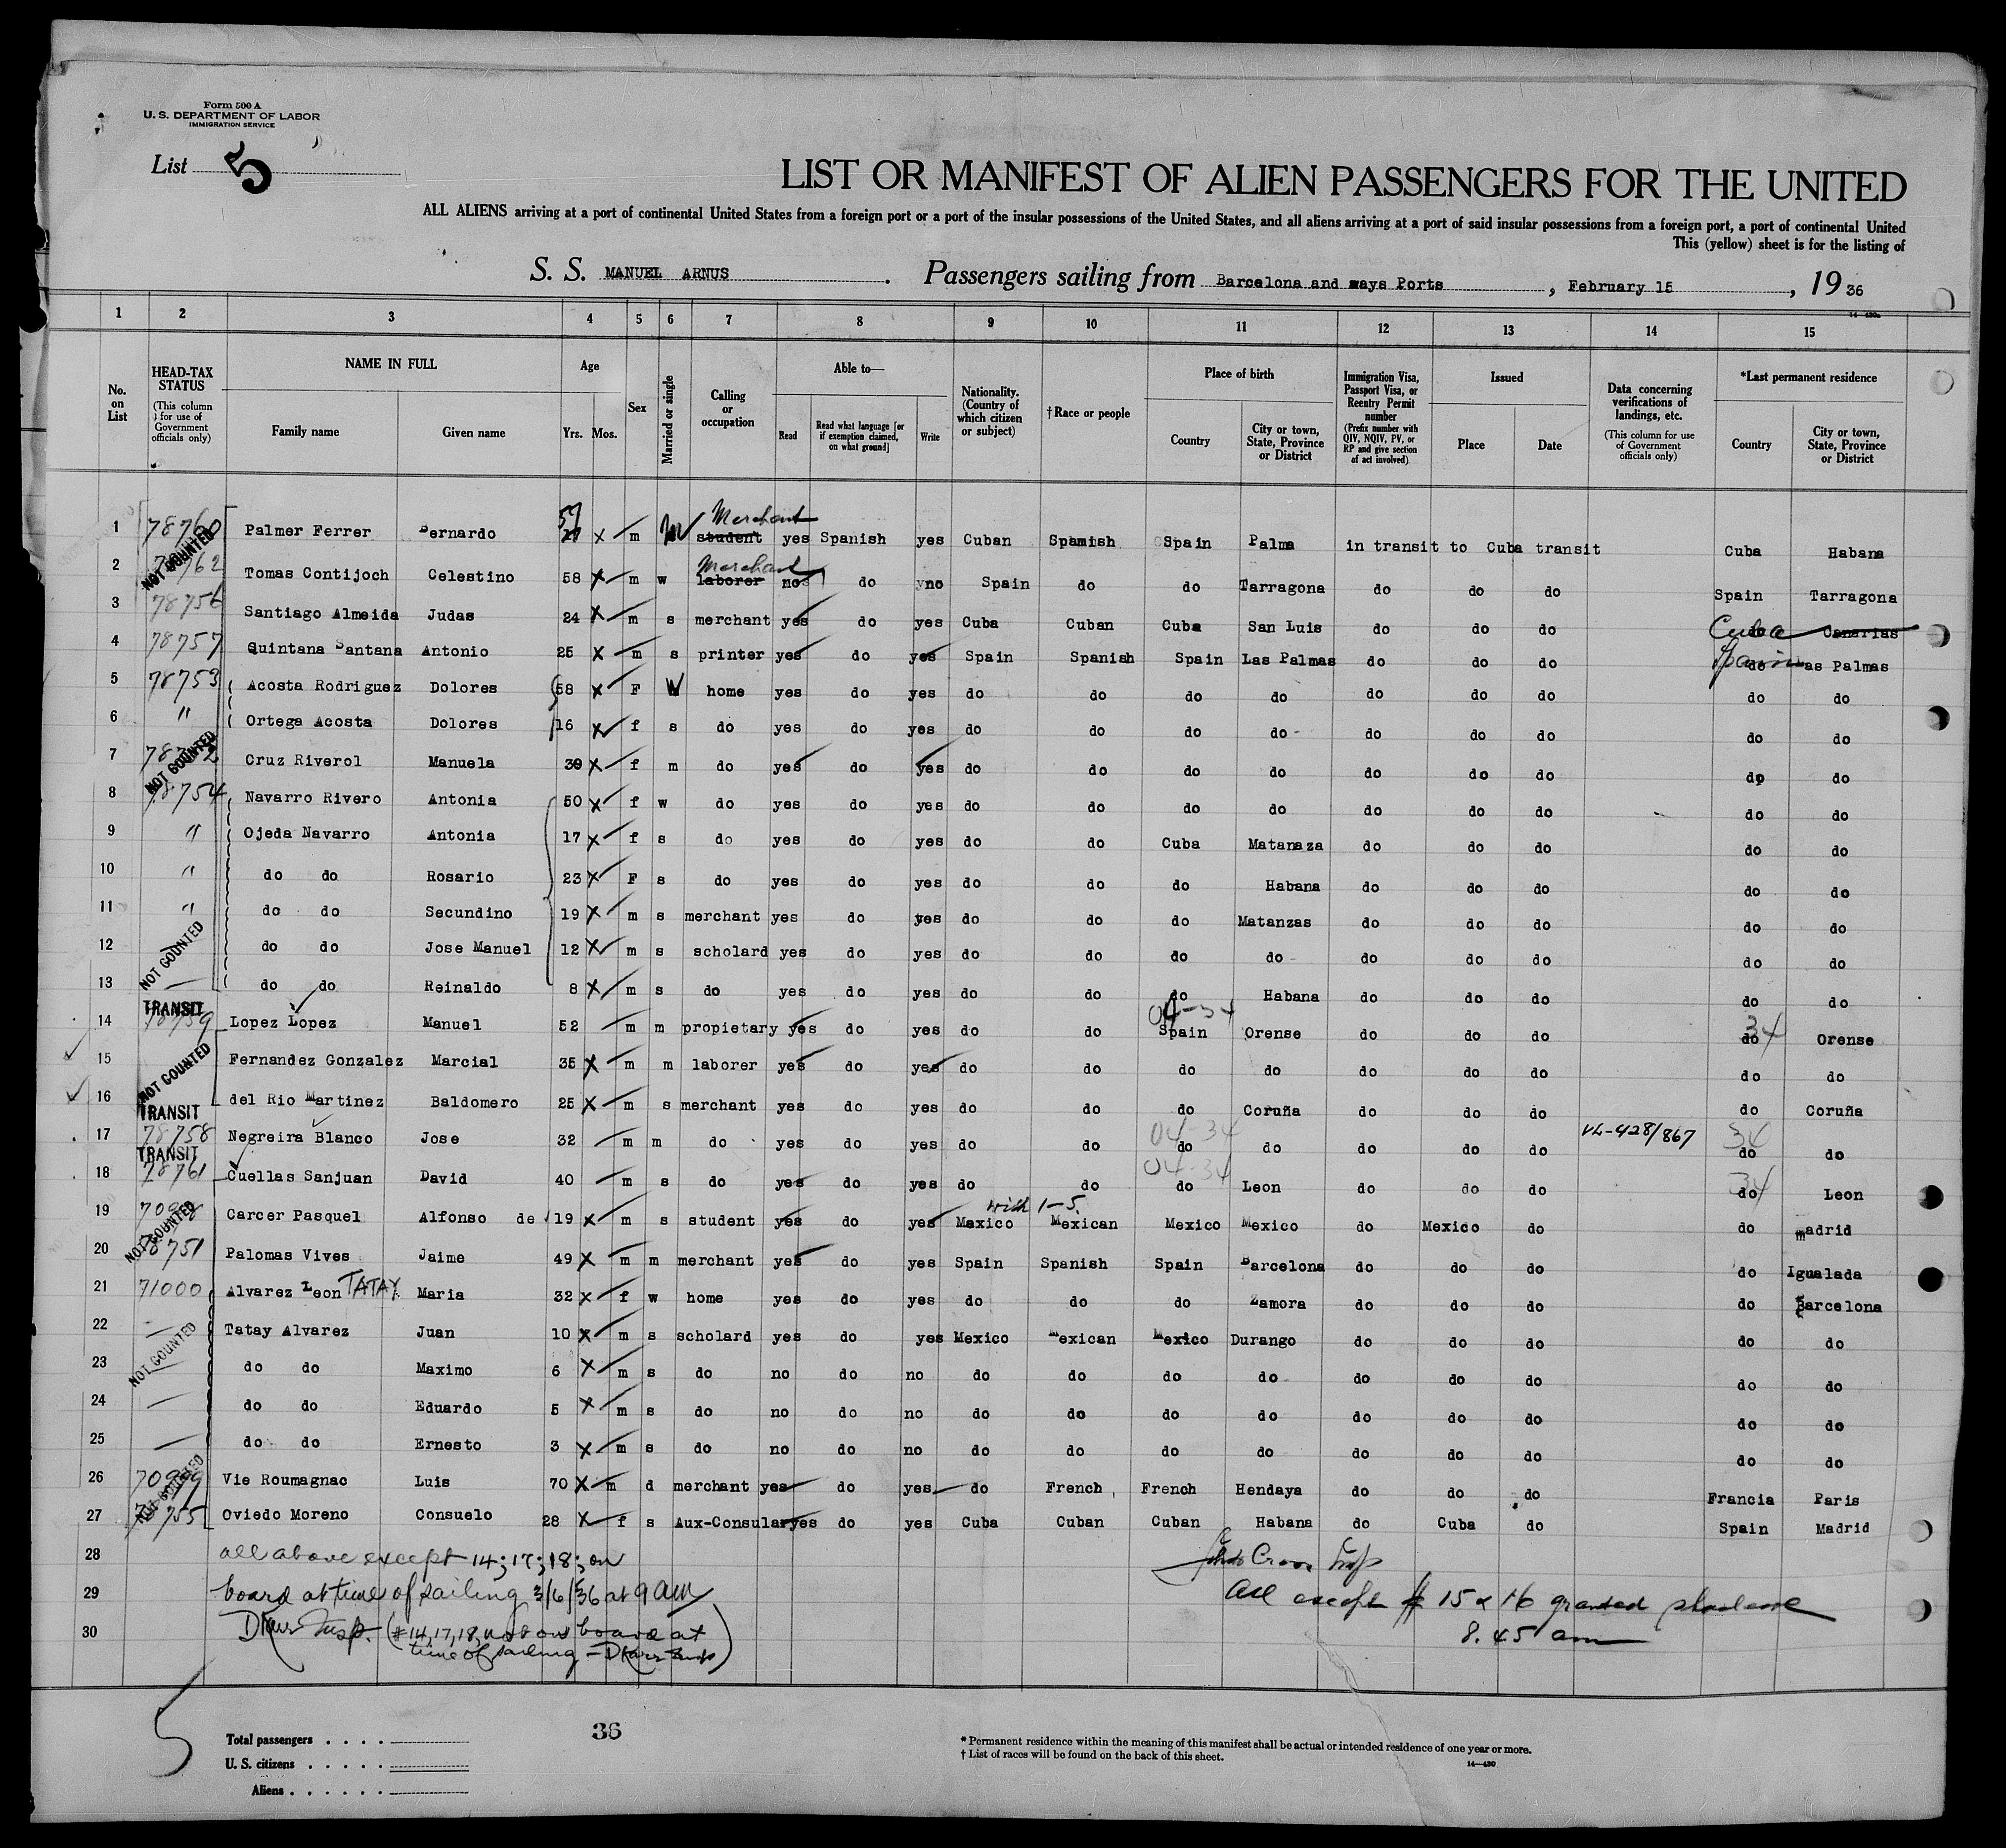 Form 500 A
U. S. DEPARTMENT OF LABOR
IMMIGRATION SERVICE
List 5
LIST OR MANIFEST OF ALIEN PASSENGERS FOR THE UNITED
ALL ALIENS arriving at a port of continental United States from a foreign port or a port of the insular possessions of the United States, and all aliens arriving at a port of said insular possessions from a foreign port, a port of continental United
This (yellow) sheet is for the listing of
S. S. MANUEL ARNUS. Passengers sailing from Barcelona and ways Ports, February 15, 19 36
1 2 3 4 5 6 7 8 9 10 11 12 13 14 15
No. on List
HEAD-TAX STATUS (This column for use of Government officials only)
NAME IN FULL Family name Given name
Age Yrs. Mos.
Sex
Married or single
Calling or occupation
Able to— Read Read what language [or if exemption claimed, on what ground] Write
Nationality. (Country of which citizen or subject)
†Race or people
Place of birth Country City or town, State, Province or District
Immigration Visa, Passport Visa, or Reentry Permit number (Prefix number with QIV, NQIV, PV, or RP and give section of act involved)
Issued Place Date
Data concerning verifications of landings, etc. (This column for use of Government officials only)
*Last permanent residence Country City or town, State, Province or District
1 78760 Palmer Ferrer Bernardo 57 x m Merchant student yes Spanish yes Cuban Spamish Spain Palma in transit to Cuba transit Cuba Habana
NOT COUNTED
2 Tomas Contijoch Celestino 58 x m w Merchant laborer no do no Spain do do Tarragona do do do Spain Tarragona
3 78756 Santiago Almeida Judas 24 x m s merchant yes do yes Cuba Cuban Cuba San Luis do do do Cuba Canarias
4 78757 Quintana Santana Antonio 25 x m s printer yes do yes Spain Spanish Spain Las Palmas do do do Spain as Palmas
5 78753 Acosta Rodriguez Dolores 58 x F W home yes do yes do do do do do do do do do
6 " Ortega Acosta Dolores 16 x f s do yes do yes do do do do do do do do do
NOT COUNTED
7 Cruz Riverol Manuela 39 x f m do yes do yes do do do do do do do do do
8 78754 Navarro Rivero Antonia 50 x f w do yes do yes do do do do do do do do do
9 " Ojeda Navarro Antonia 17 x f s do yes do yes do do Cuba Matanaza do do do do do
10 " do do Rosario 23 x F s do yes do yes do do do Habana do do do do do
11 " do do Secundino 19 x m s merchant yes do yes do do do Matanzas do do do do do
NOT COUNTED
12 do do Jose Manuel 12 x m s scholard yes do yes do do do do do do do do do
13 do do Reinaldo 8 x m s do yes do yes do do do Habana do do do do do
TRANSIT 04-34 34
14 78759 Lopez Lopez Manuel 52 m m propietary yes do yes do do Spain Orense do do do do Orense
NOT COUNTED
15 Fernandez Gonzalez Marcial 35 x m m laborer yes do yes do do do do do do do do do
16 del Rio Martinez Baldomero 25 x m s merchant yes do yes do do do Coruña do do do do Coruña
TRANSIT 04-34 34
17 78758 Negreira Blanco Jose 32 m m do yes do yes do do do do do do do VL-428/867 do do
TRANSIT 04-34 34
18 78761 Cuellas Sanjuan David 40 m s do yes do yes do do do Leon do do do do Leon
with 1-5.
19 Carcer Pasquel Alfonso de 19 x m s student yes do yes Mexico Mexican Mexico Mexico do Mexico do do madrid
NOT COUNTED
20 78751 Palomas Vives Jaime 49 x m m merchant yes do yes Spain Spanish Spain Barcelona do do do do Igualada
21 71000 Alvarez Leon TATAY Maria 32 x f w home yes do yes do do do Zamora do do do do Barcelona
22 Tatay Alvarez Juan 10 x m s scholard yes do yes Mexico Mexican Mexico Durango do do do do do
NOT COUNTED
23 do do Maximo 6 x m s do no do no do do do do do do do do do
24 do do Eduardo 5 x m s do no do no do do do do do do do do do
25 do do Ernesto 3 x m s do no do no do do do do do do do do do
26 70999 Vie Roumagnac Luis 70 x m d merchant yes do yes do French French Hendaya do do do Francia Paris
NOT COUNTED
27 78755 Oviedo Moreno Consuelo 28 x f s Aux-Consular yes do yes Cuba Cuban Cuban Habana do Cuba do Spain Madrid
28 all above except 14; 17; 18; on
29 board at time of sailing 3/6/36 at 9 am
30 Insp. (#14, 17, 18, not on board at
time of sailing
All except # 15 & 16 granted
8.45 am
5
36
Total passengers
U. S. citizens
Aliens
* Permanent residence within the meaning of this manifest shall be actual or intended residence of one year or more.
† List of races will be found on the back of this sheet.
14—430